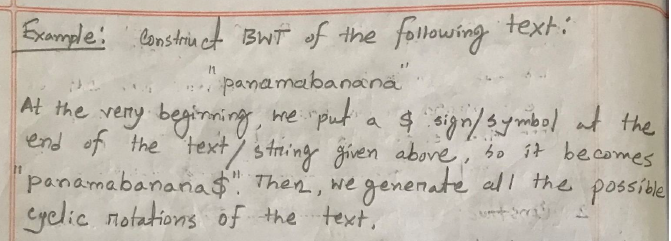 Example: Construct BWT of the following text:
"panamabanana"
At the very beginning, we put a $ sign/symbol at the
end of the text/string given above, so it becomes
"panamabanana$". Then, we generate all the possible
cyclic rotations of the text.